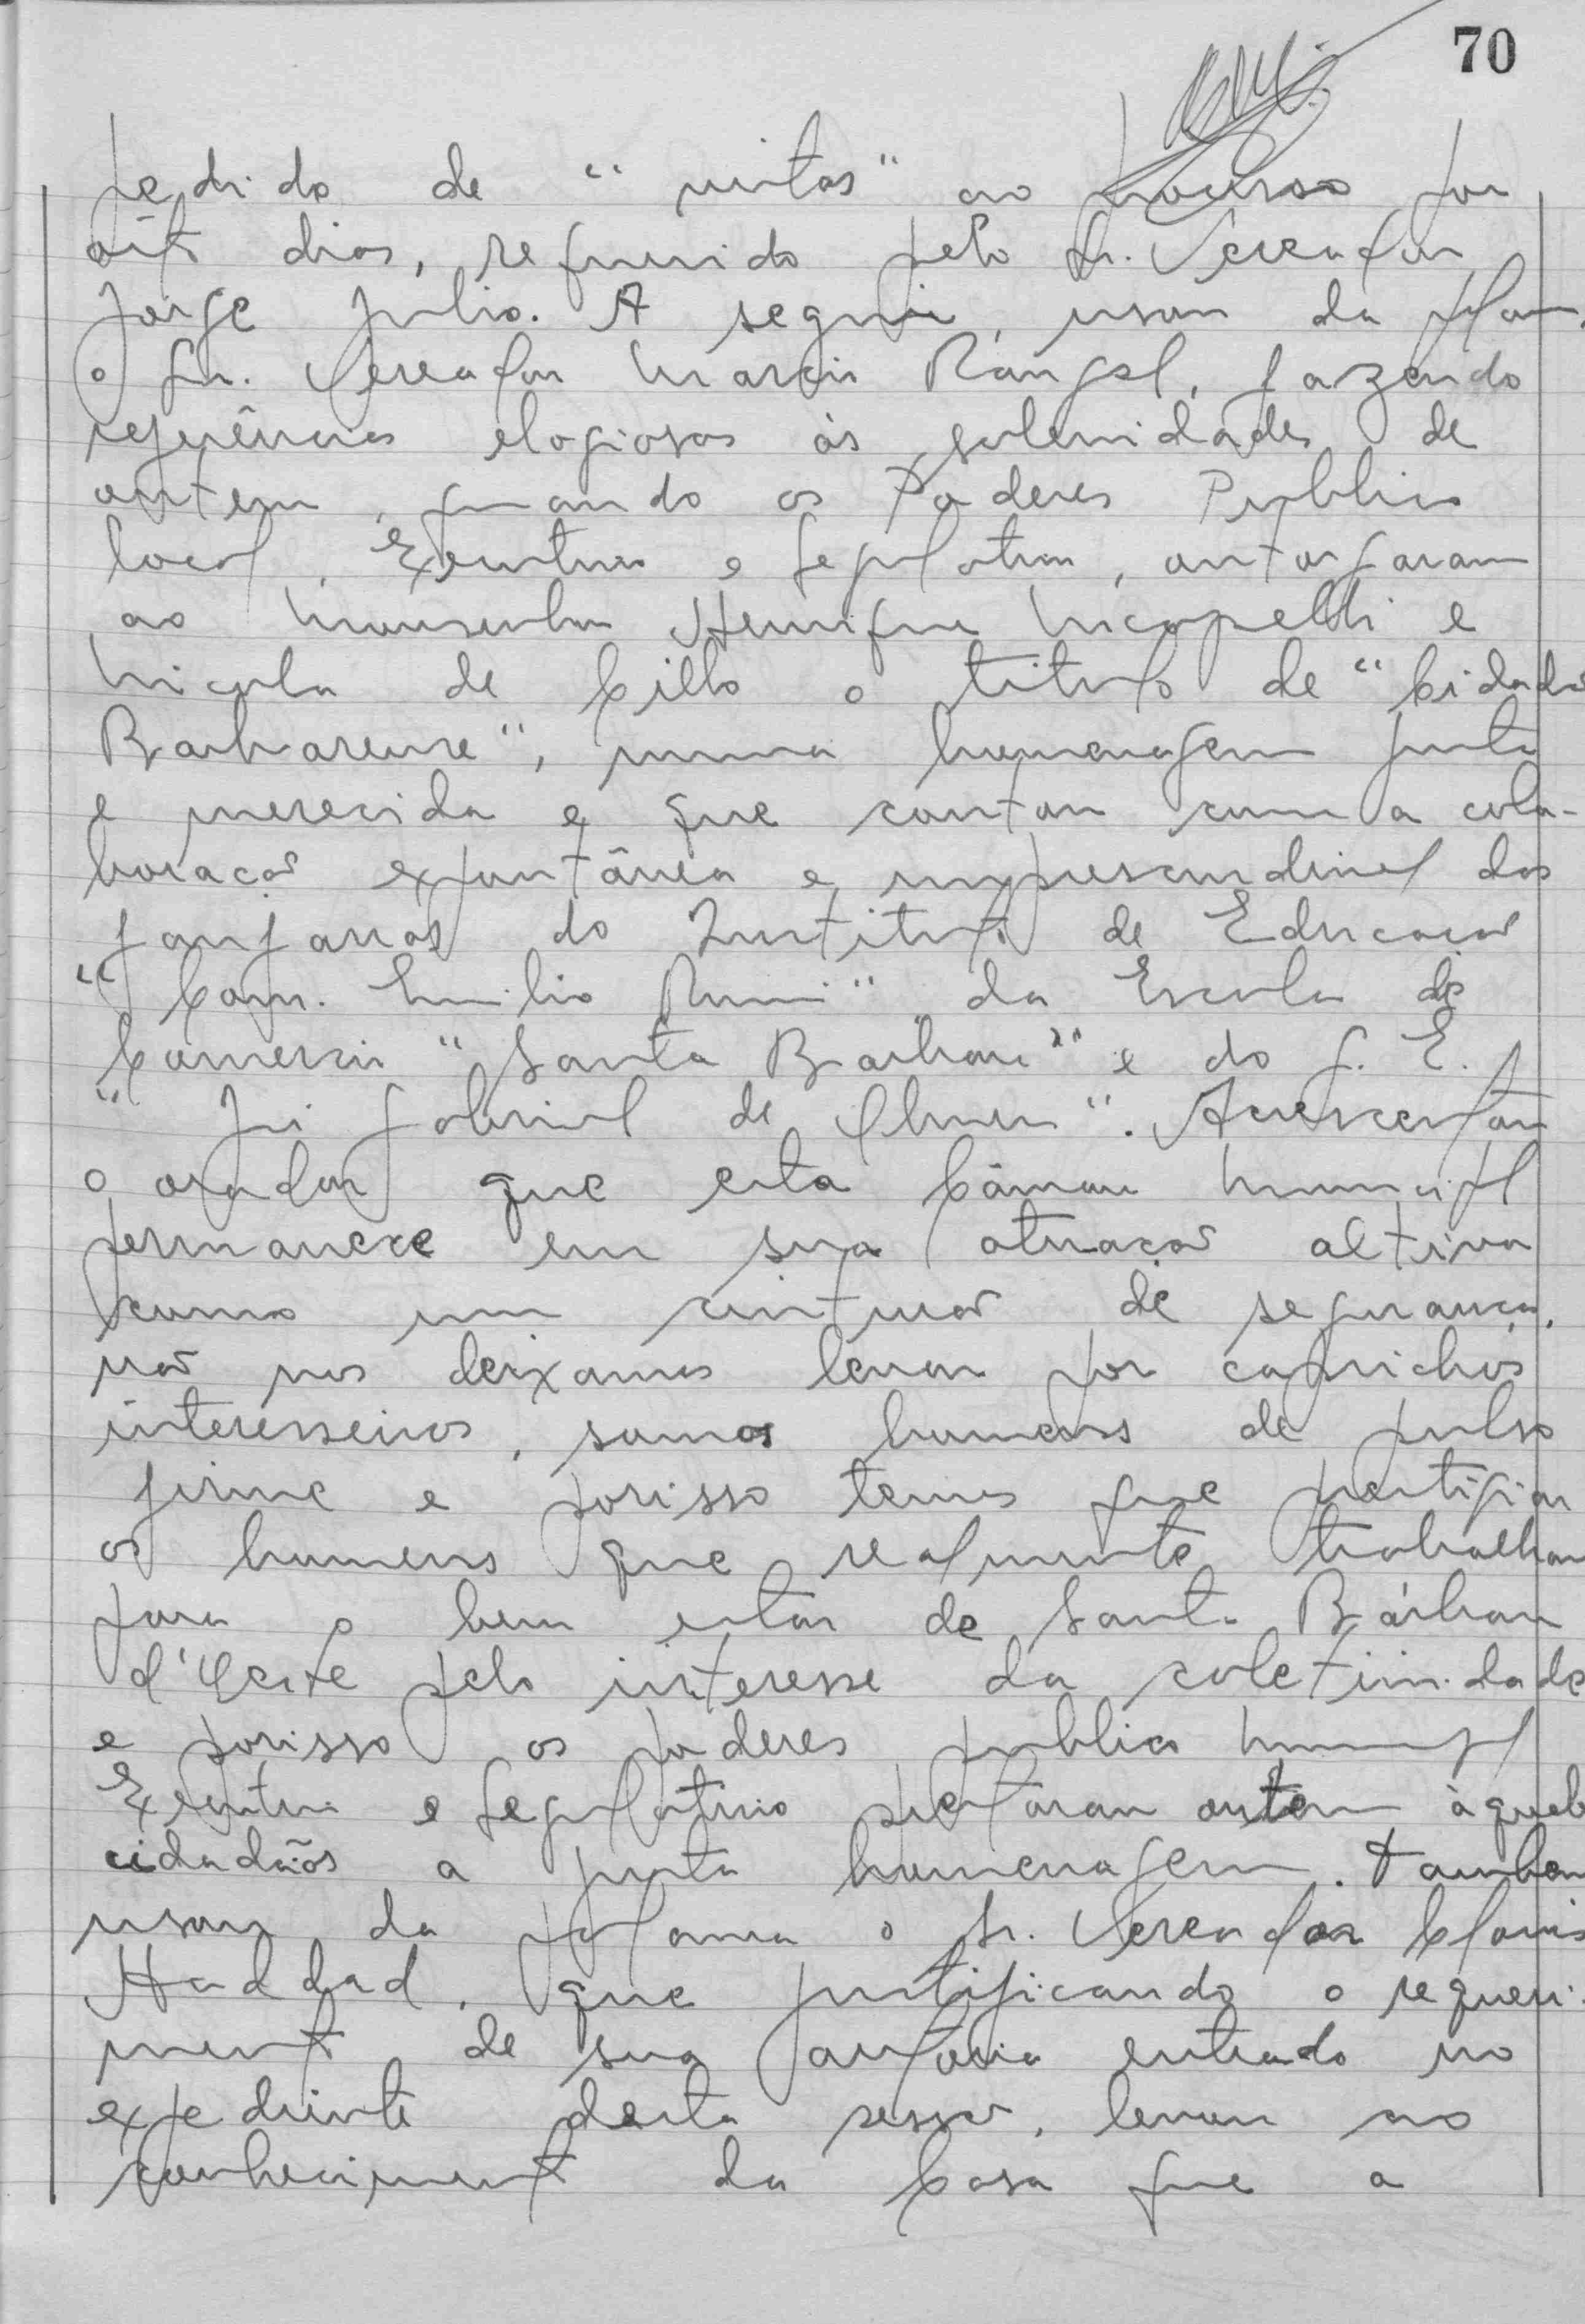 70
pedido de "vistas" ao processo por
oito dias, requerido pelo Sr. Vereador
Jorge Julio. A seguir, usou da palavra,
o Sr. Vereador Marcio Rangel, fazendo
referências elogiosas às solenidades de
ontem, quando os Poderes Publicos
local, Executivo e Legislativo, outorgaram
ao Monsenhor Henrique Nicopelli e
Nicola de Cillo o titulo de "Cidadão
Barbarense", numa homenagem justa
e merecida e que contou com a cola-
boração expontânea e imprescindivel das
fanfarras do Instituto de Educação
"Com. Emilio Romi", da Escola de
Comercio "Santa Barbara" e do G. E.
" Gabriel de Oliveira". Acrescentou
o orador que esta Câmara Municipal
permanece em sua atuação altiva
como um cinturão de segurança,
não nos deixamos levar por caprichos
interesseiros, somos homens de pulso
firme e porisso temos que prestigiar
os homens que realmente trabalham
para o bem estar de Santa Bárbara
d'Oeste pelo interesse da coletividade
e porisso os poderes publico municipal
Executivo e Legislativo prestaram ontem àqueles
cidadãos a justa homenagem. Tambem
usou da palavra o Sr. Vereador Clovis
Haddad, que justificando o requeri-
mento de sua autoria entrado no
expediente desta sessão, levou ao
conhecimento da Casa que a